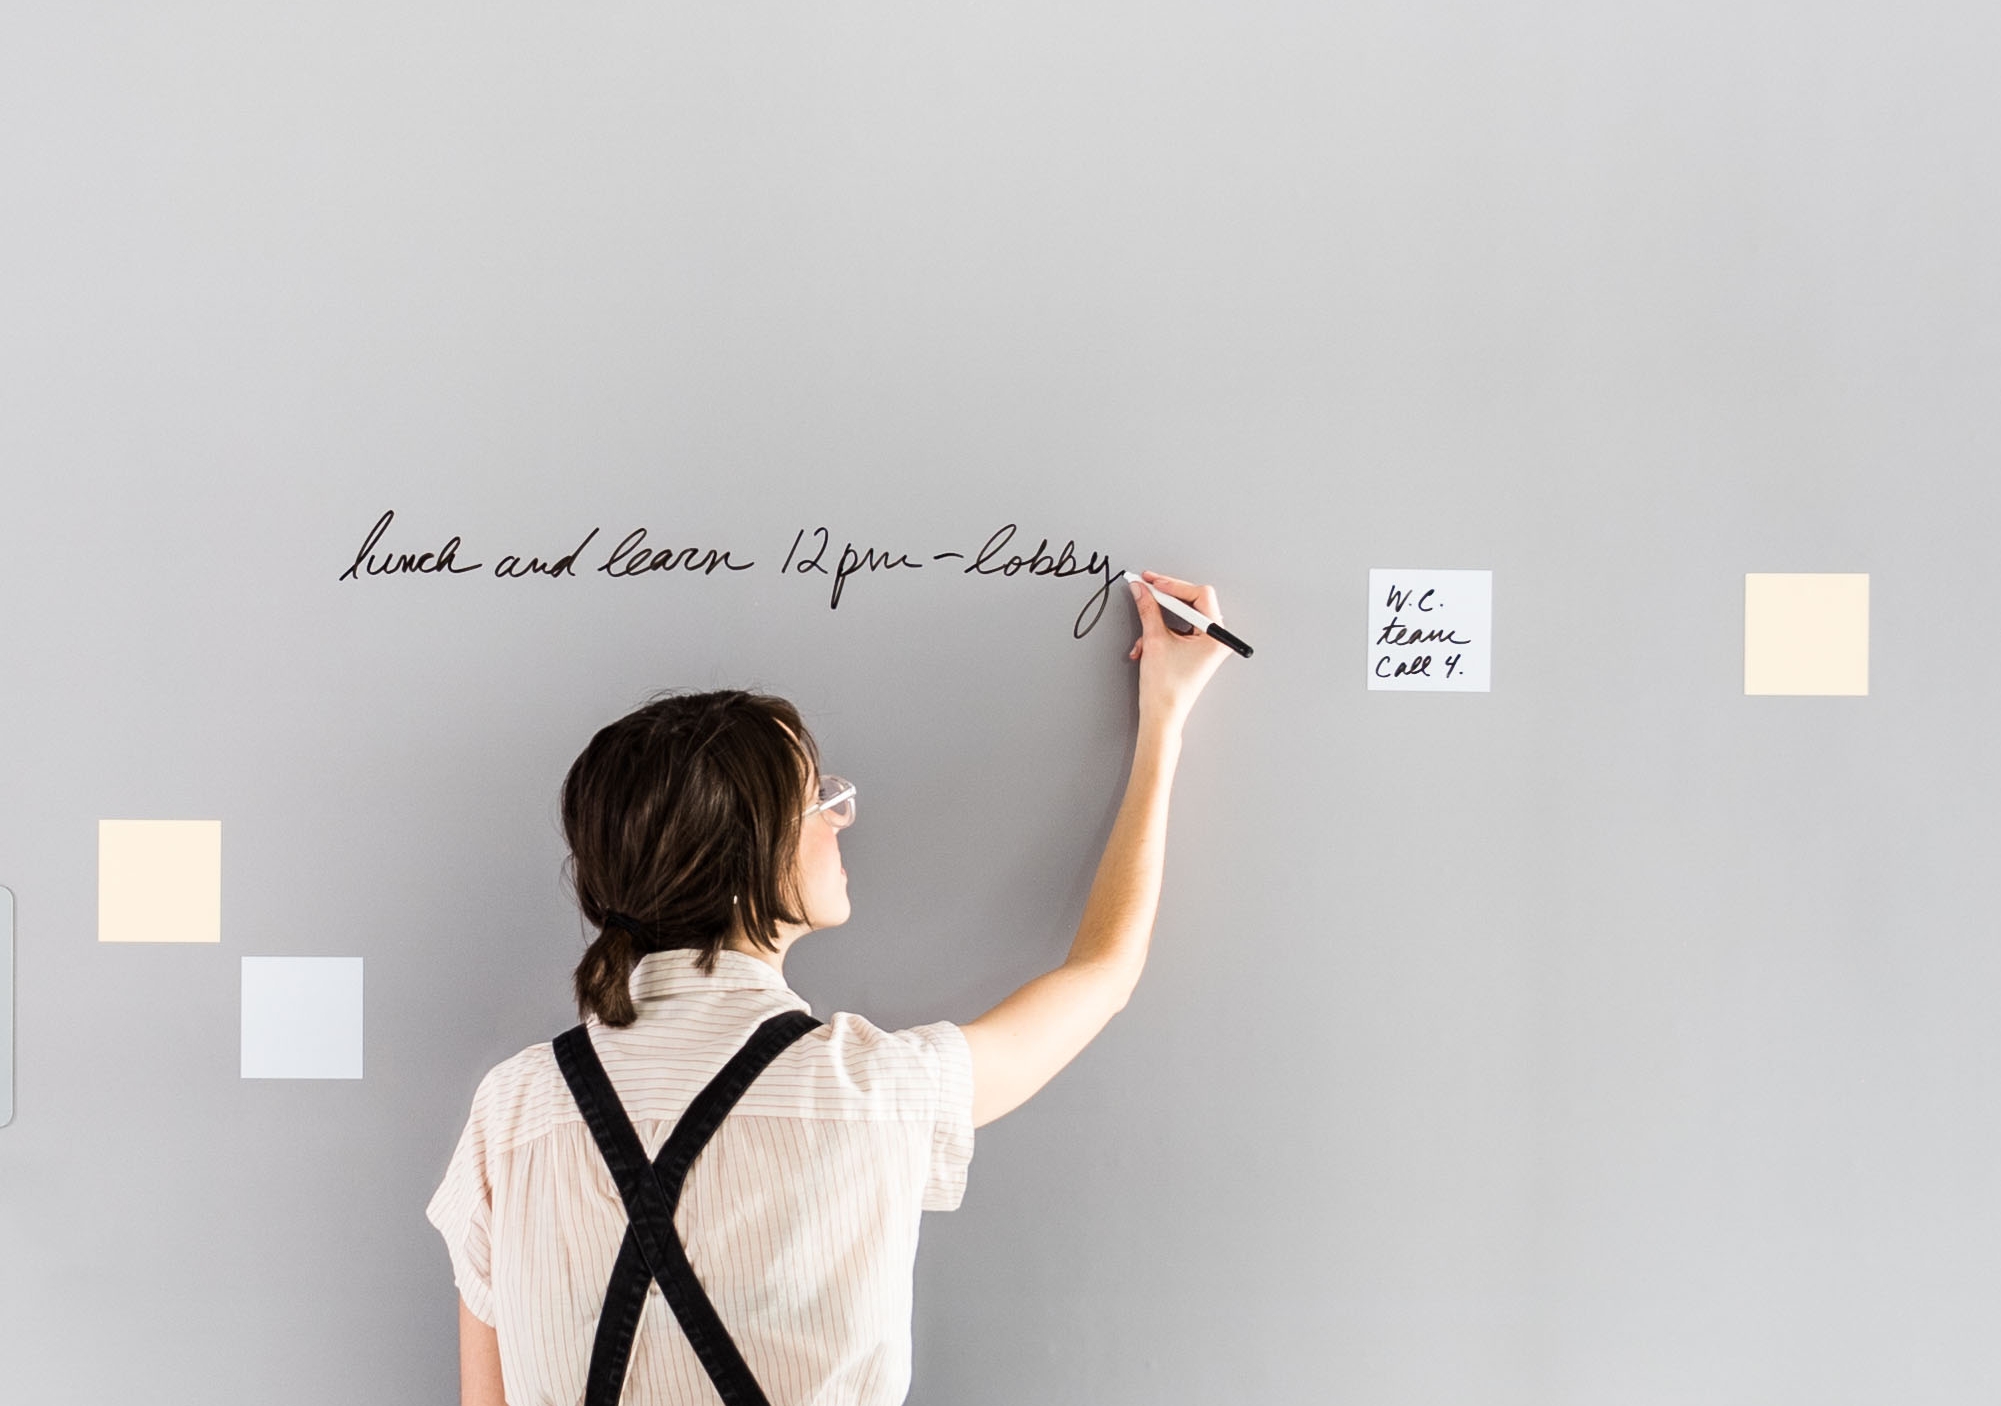 lunch and learn 12pm-lobby
W.C.
team
Call 4.